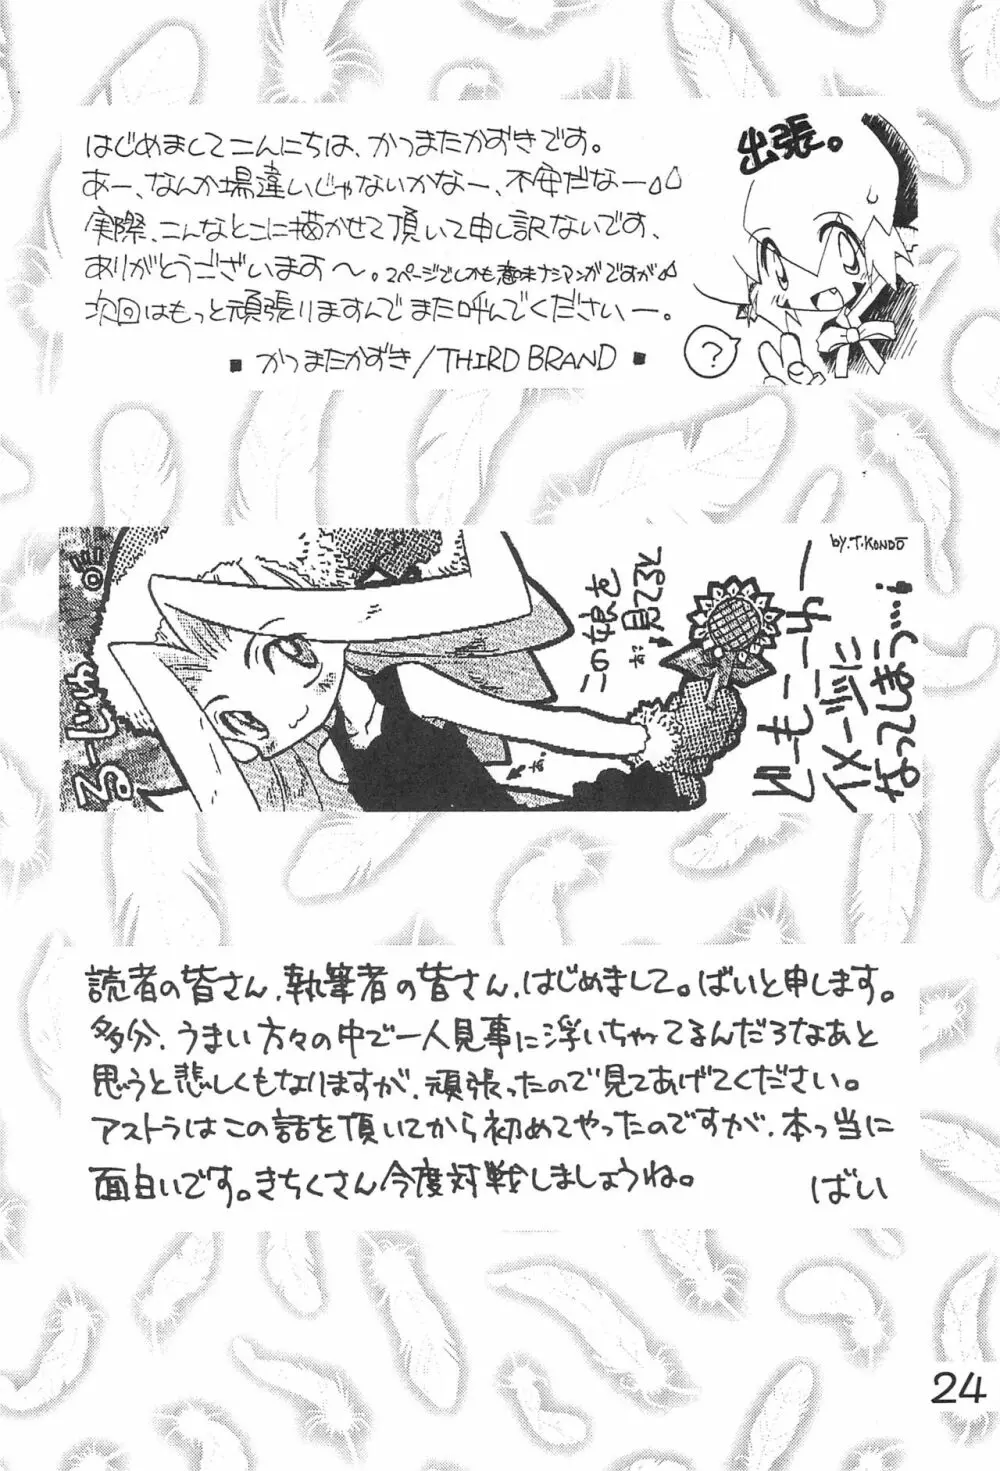 はじめましてこんにちは、かつまたかずきです。
あー、なんか場違いじゃないかなー、不安だなー
実際、こんなとこに描かせて頂いて申し訳ないです、
ありがとうございます〜。2ページでしかも意味ナシマンガですが
次回はもっと頑張りますんでまた呼んでくださいー。
■ かつまたかずき/THIRD BRAND ■
出張。
?
by.T.KONDO
この娘を
見てると
どーも
イメージに
なってしまう…!
読者の皆さん、執筆者の皆さん、はじめまして。ばいと申します。
多分、うまい方々の中で一人見事に浮いちゃってるんだろなあと
思うと悲しくもなりますが、頑張ったので見てあげてください。
アストラはこの話を頂いてから初めてやったのですが、本っ当に
面白いです。きちくさん今度対戦しましょうね。
ばい
24